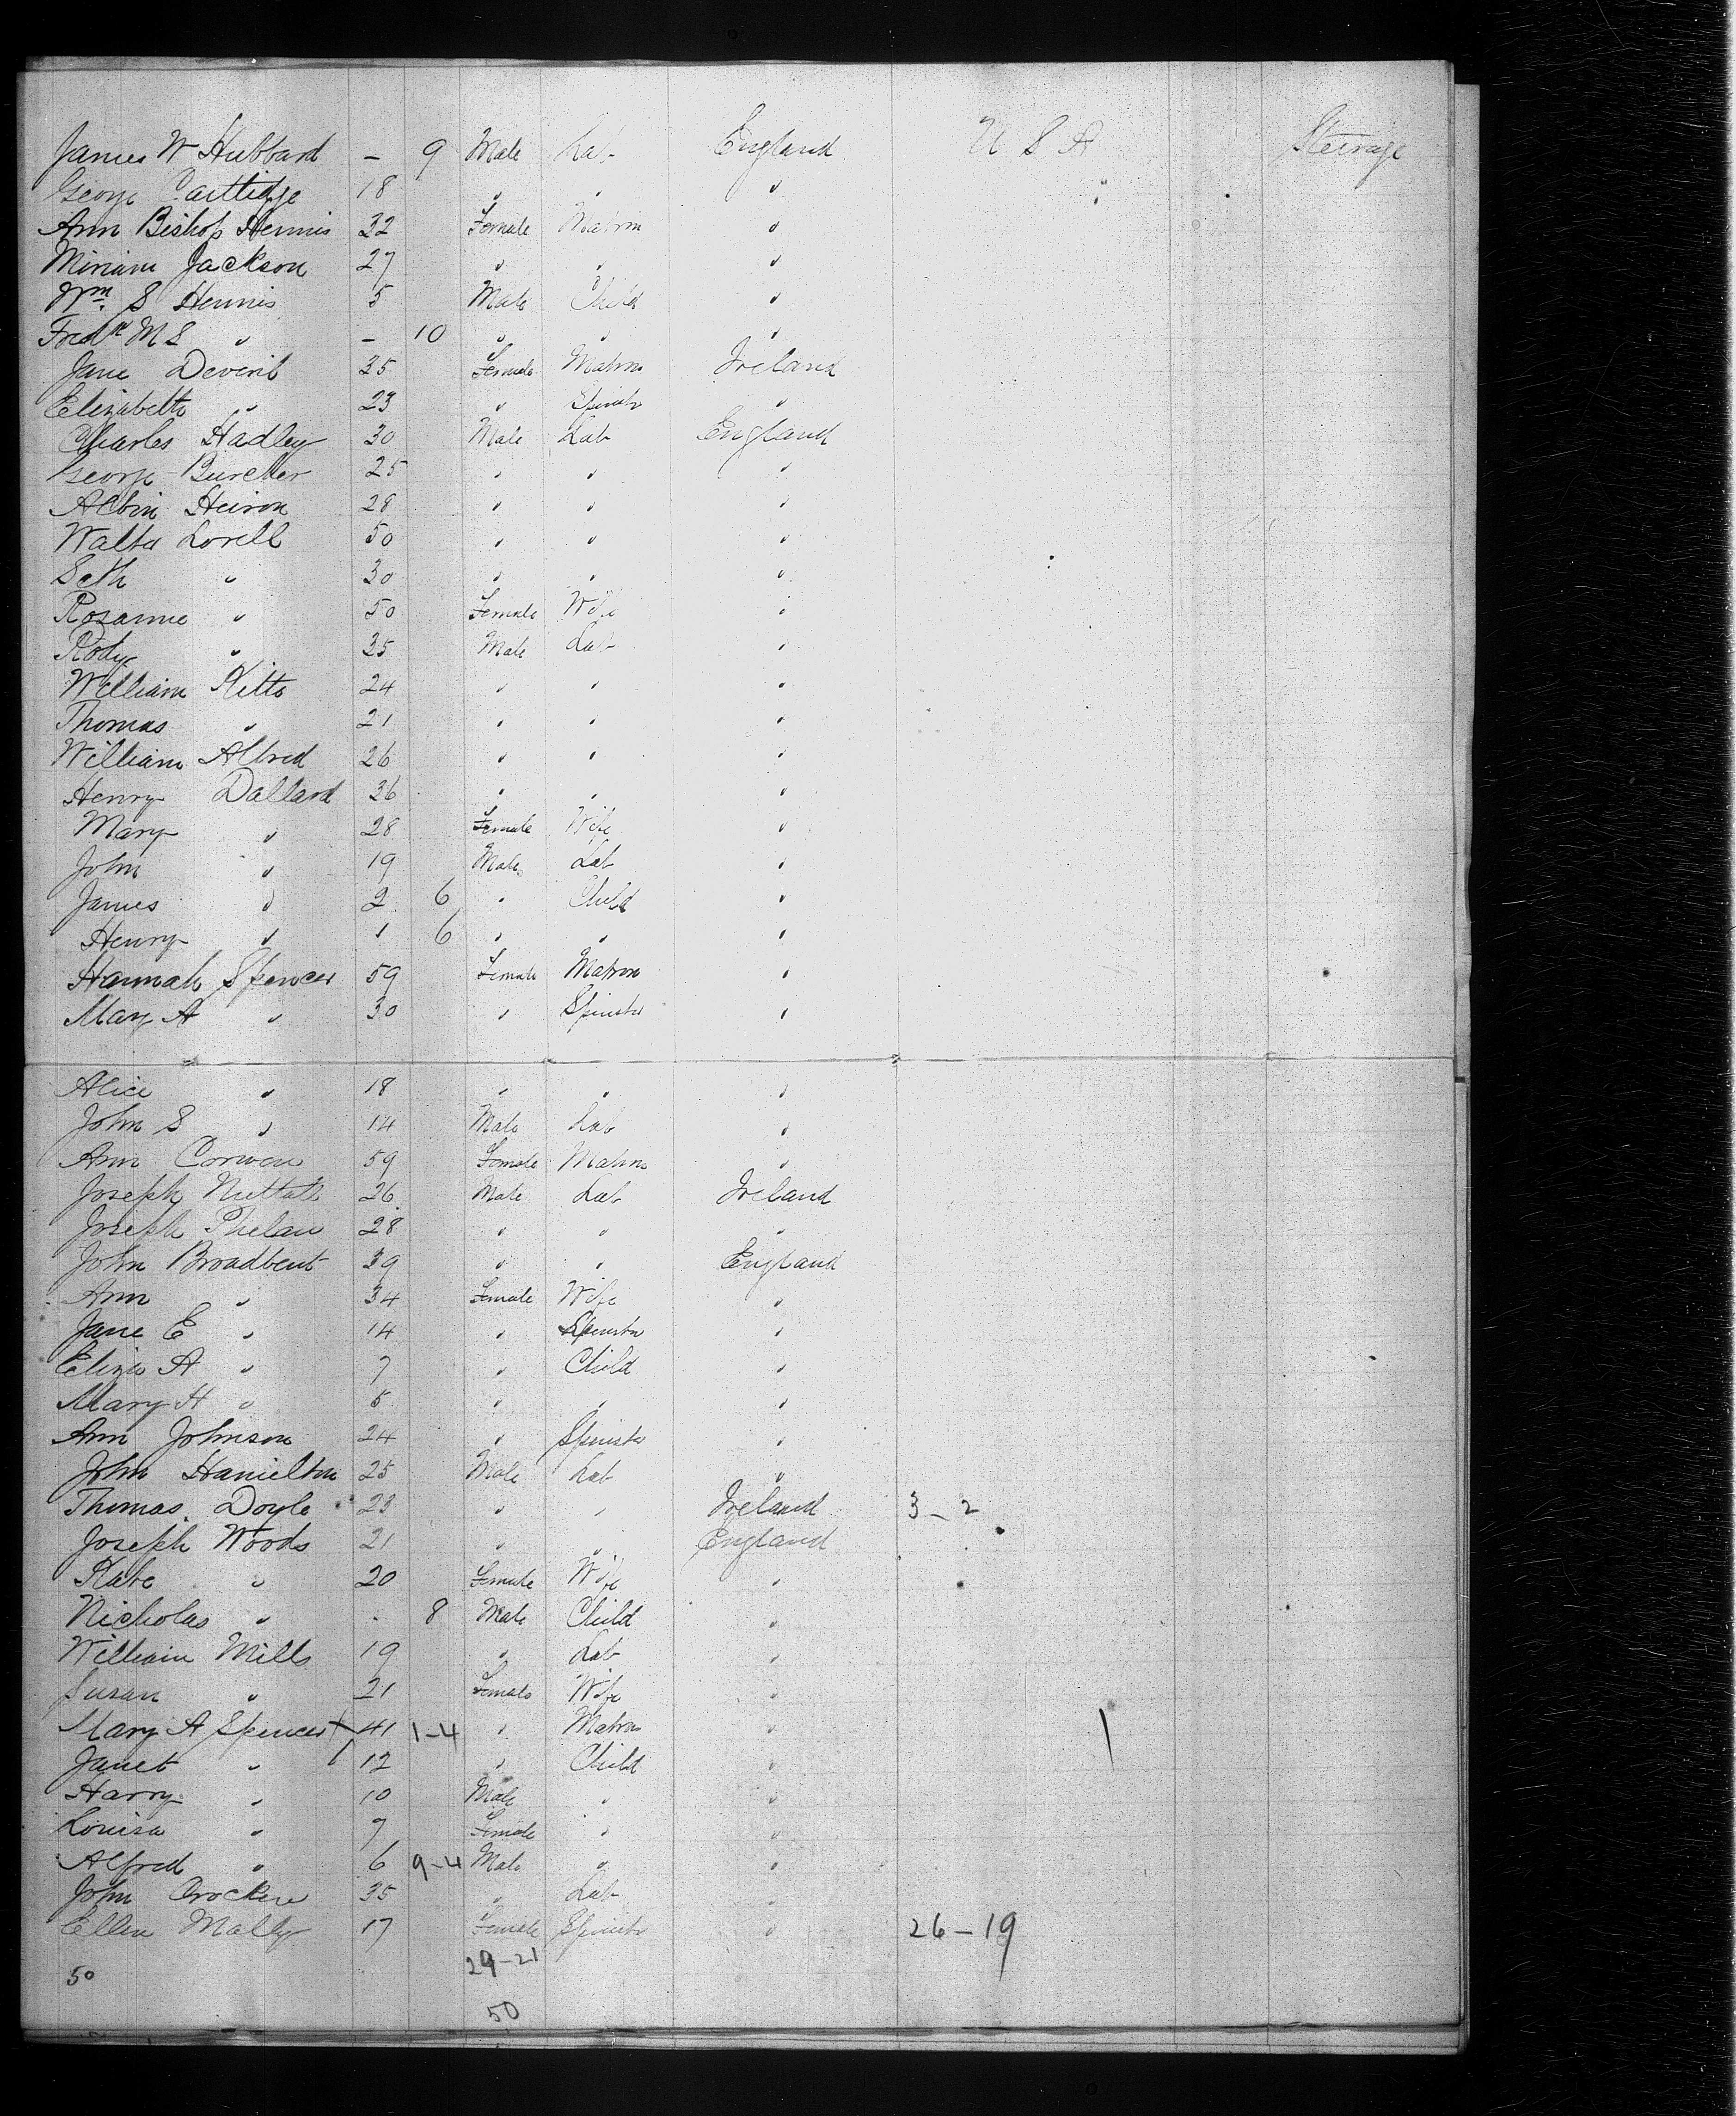 James W Hubbard - 9 Male Lab England U S A Steerage
George Carttidge 18 " " "
Ann Bishop Hennis 32 Female Matrn "
Miriam Jackson 27 " " "
Wm. S Hennis 5 Male Child "
Fredk M S " - 10 " " "
Jane Deveril 35 Female Matrn Ireland
Elizabeth " 23 " Spinstr "
Charles Hadley 30 Male Lab England
George Burcher 25 " " "
Albin Heiron 28 " " "
Walter Lovell 50 " " "
Seth " 30 " " "
Rosanne " 50 Female Wife "
Rody " 25 Male Lab "
William Kitts 24 " " "
Thomas " 21 " " "
William Allred 26 " " "
Henry Dallard 36 " " "
Mary " 28 Female Wife "
John " 19 Male Lab "
James " 2 6 " Child "
Henry " 1 6 " " "
Hannah Spencer 59 Female Matron "
Mary A " 30 " Spinster "
Alice " 18 " " "
John S " 14 Male Lab "
Ann Corwen 59 Female Matrn "
Joseph Nuttall 26 Male Lab Ireland
Joseph Phelan 28 " " "
John Broadbent 39 " " England
Ann " 34 Female Wife "
Jane E " 14 " Spinster "
Eliza A " 7 " Child "
Mary H " 5 " " "
Ann Johnson 24 " Spinster "
John Hamilton 25 Male Lab "
Thomas Doyle 23 " " Ireland 3-2
Joseph Woods 21 " " England
Kate " 20 Female Wife "
Nicholas " . 8 Male Child "
William Mills 19 " Lab "
Susan " 21 Female Wife "
Mary A Spencer 41 1-4 " Matrn "
Janet " 12 " Child "
Harry " 10 Male " "
Louisa " 7 Female " "
Alfred " 6 9-4 Male " "
John Crocker 35 " Lab "
Ellen Mally 17 Female Spinstr " 26-19
50 29-21
50